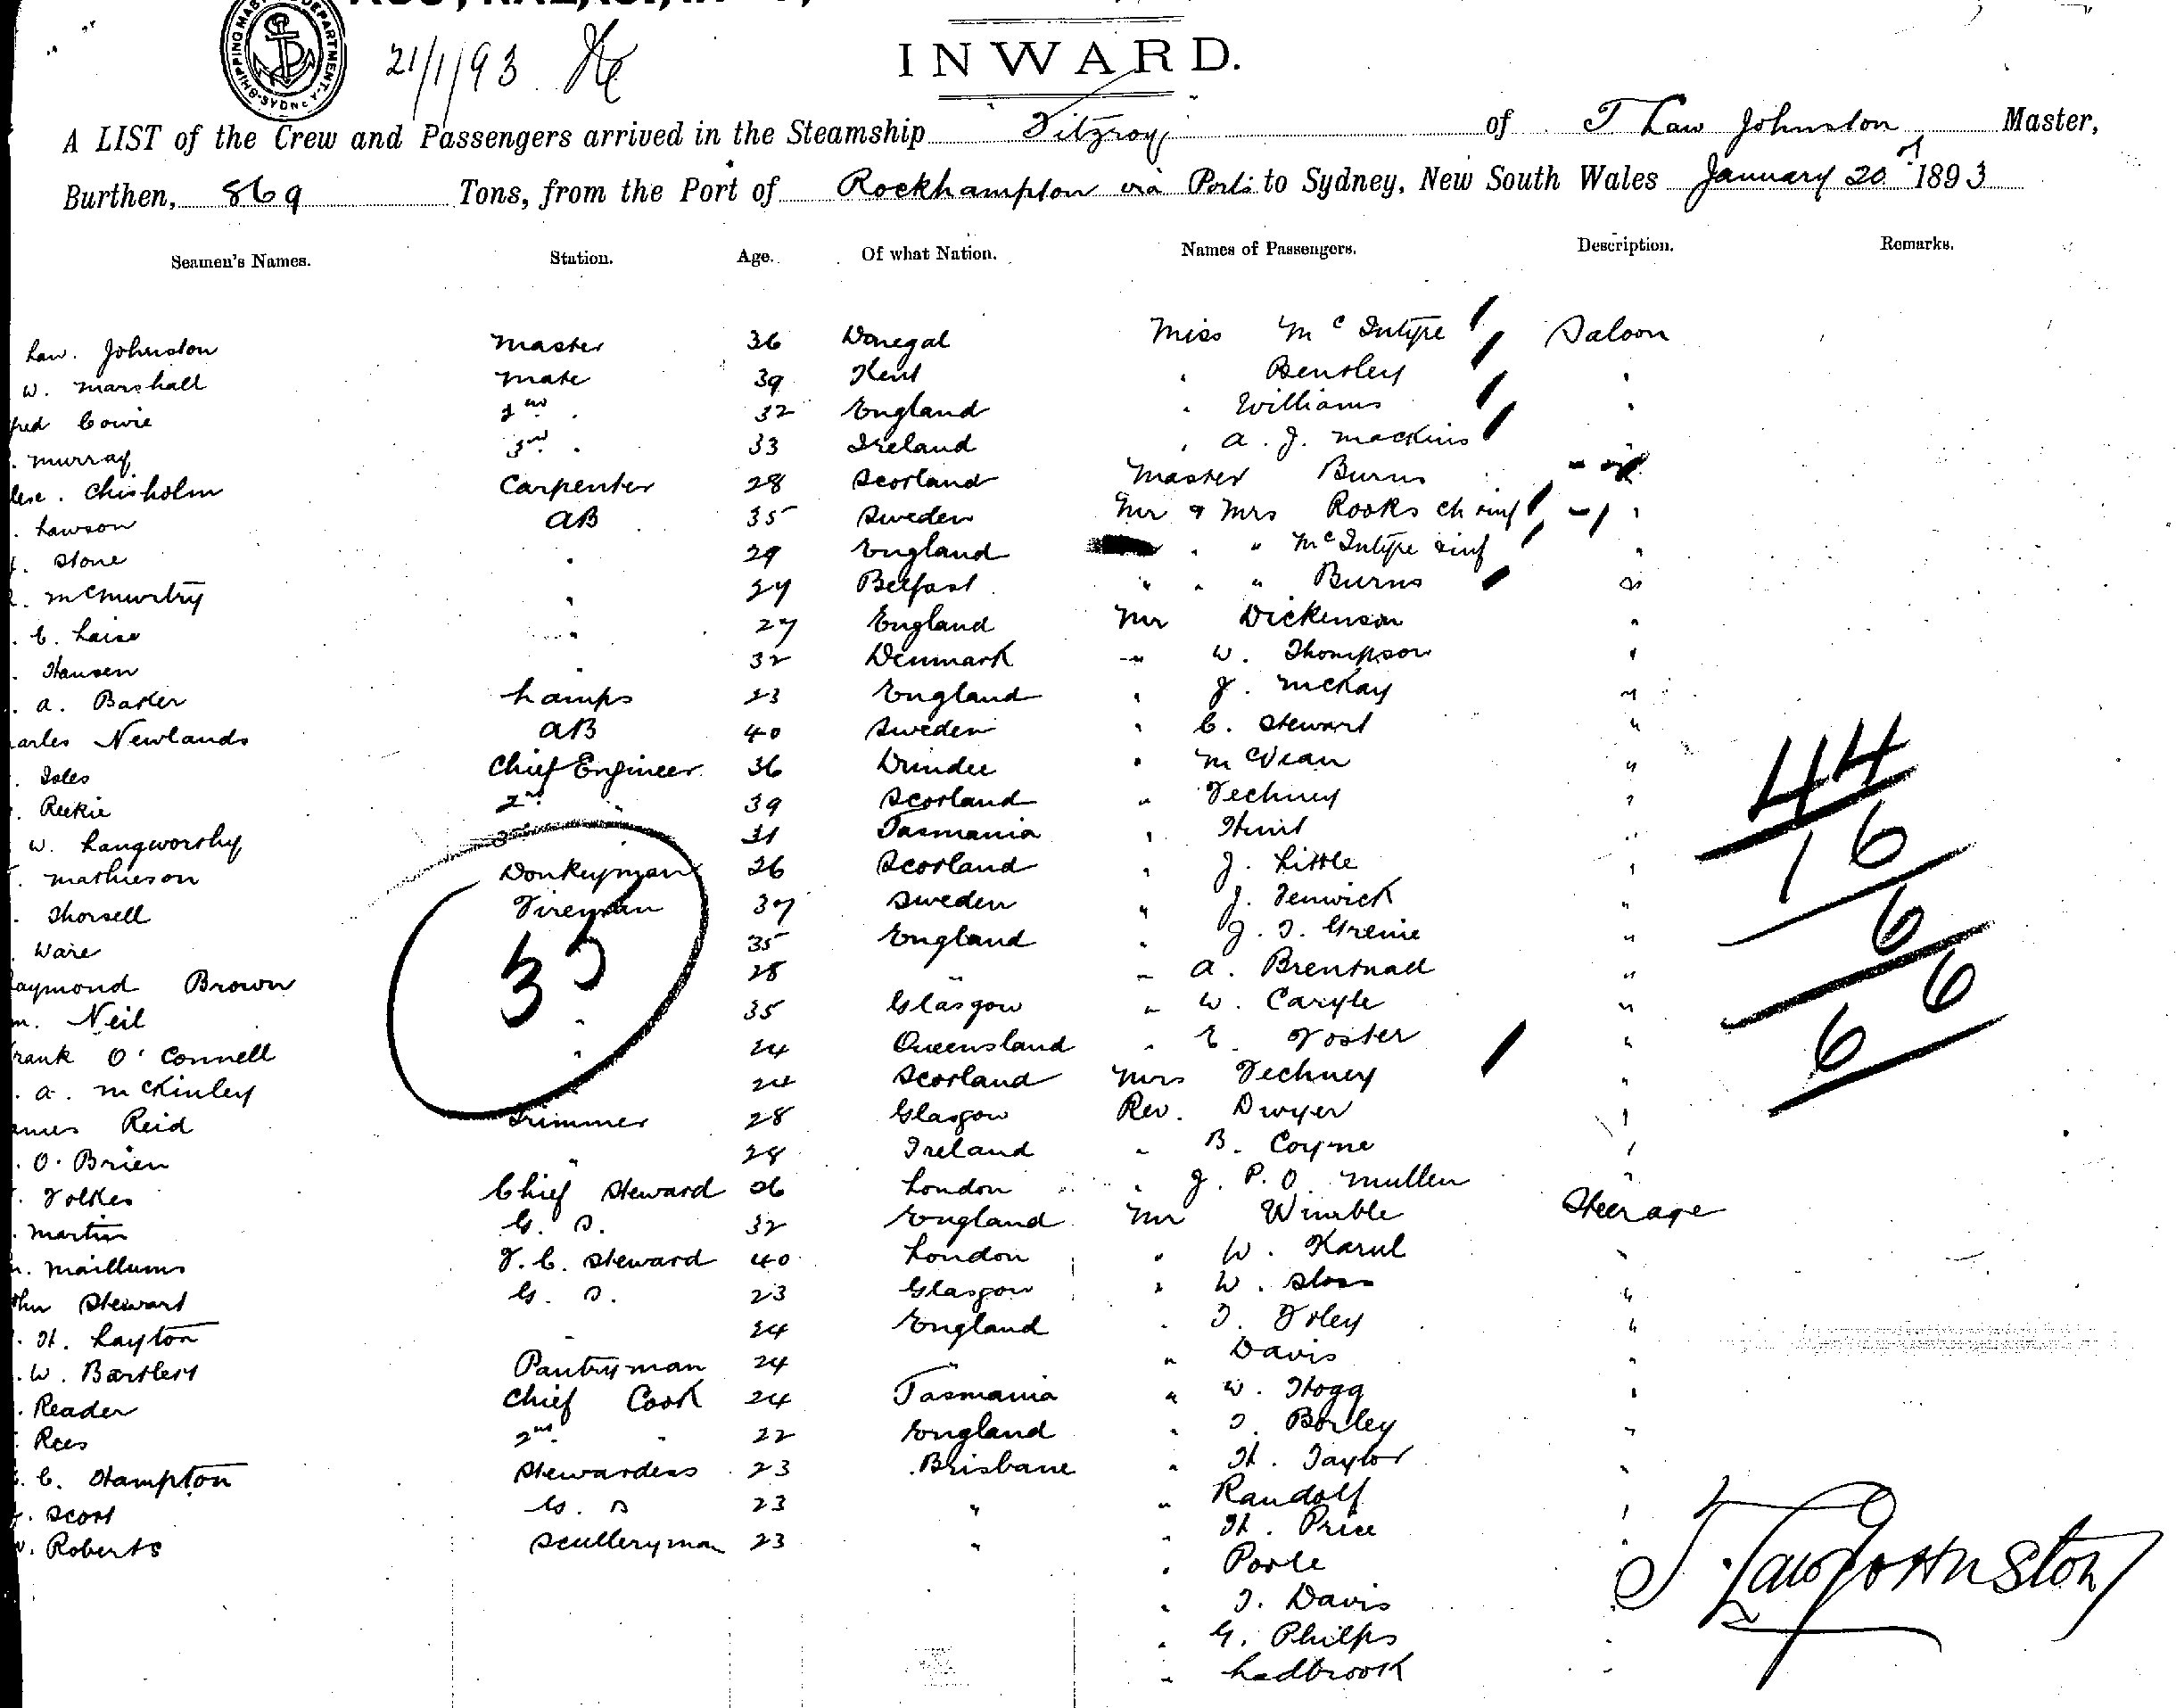 SHIPPING MASTER'S DEPARTMENT SYDNEY
21/1/93
INWARD.
A LIST of the Crew and Passengers arrived in the Steamship Fitzroy of T Law Johnston Master,
Burthen, 869 Tons, from the Port of Rockhampton via Ports to Sydney, New South Wales January 20th 1893
Seamen's Names. Station. Age. Of what Nation. Names of Passengers. Description. Remarks.
Law. Johnston Master 36 Donegal Miss McIntyre Saloon
W. Marshall Mate 39 Kent " Bensley "
fred Cowie 2nd " 32 England " Williams "
. Murray 3rd " 33 Ireland " A. J. Mackins "
. Chisholm Carpenter 28 Scotland Master Burns "
. Lawson AB 35 Sweden Mr & Mrs Rooks ch "
. Stone " 29 England " " McIntyre "
. McMurtry " 27 Belfast " " " Burns "
. C. Laise " 27 England Mr Dickenson "
. Hansen " 32 Denmark " W. Thompson "
. A. Baker Lamps 23 England " J. McKay "
arles Newlands AB 40 Sweden " C. Stewart "
. Isles Chief Engineer 36 Dundee " McVean "
. Reekie 2nd " 39 Scotland " Techney "
W. Langworthy 3rd 31 Tasmania " Hunt "
. Mathieson Donkeyman 26 Scotland " J. Little "
. Thorsell Fireman 37 Sweden " J. Fenwick "
. Ware 35 England " J. T. Greine "
aymond Brown 28 " " A. Brentnall "
m. Neil " 35 Glasgow " W. Caryle "
rank O'Connell " 24 Queensland " E. Foster "
. A. McKinley 24 Scotland Mrs Techney "
ames Reid Trimmer 28 Glasgow Rev. Dwyer "
. O'Brien " 28 Ireland " B. Coyne "
. Folkes Chief Steward 26 London " J. P. O. Mullen "
. Martin G. S. 32 England Mr Wimble Steerage
. Maillums F. C. Steward 40 London " W. Karul "
ohn Stewart G. S. 23 Glasgow " W. Sloss "
. H. Layton " 24 England " T. Foley "
. W. Bartlett Pantryman 24 " " Davis "
. Reader Chief Cook 24 Tasmania " W. Hogg "
. Rees 2nd " 22 England " T. Borley "
. C. Hampton Stewardess 23 Brisbane " H. Taylor "
. Scott G. S 23 " " Randolf "
. Roberts Sculleryman 23 " " H. Price "
" Poole "
" T. Davis "
" G. Philps "
" Ladbrook "
44
16
6
6
6
T. Law Johnston